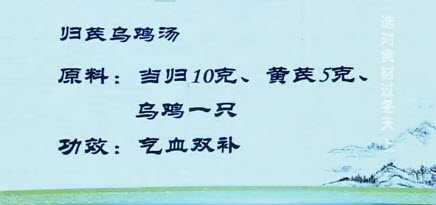 归芪乌鸡汤
原料：当归10克、黄芪5克、
乌鸡一只
功效：气血双补
选对食材过冬天